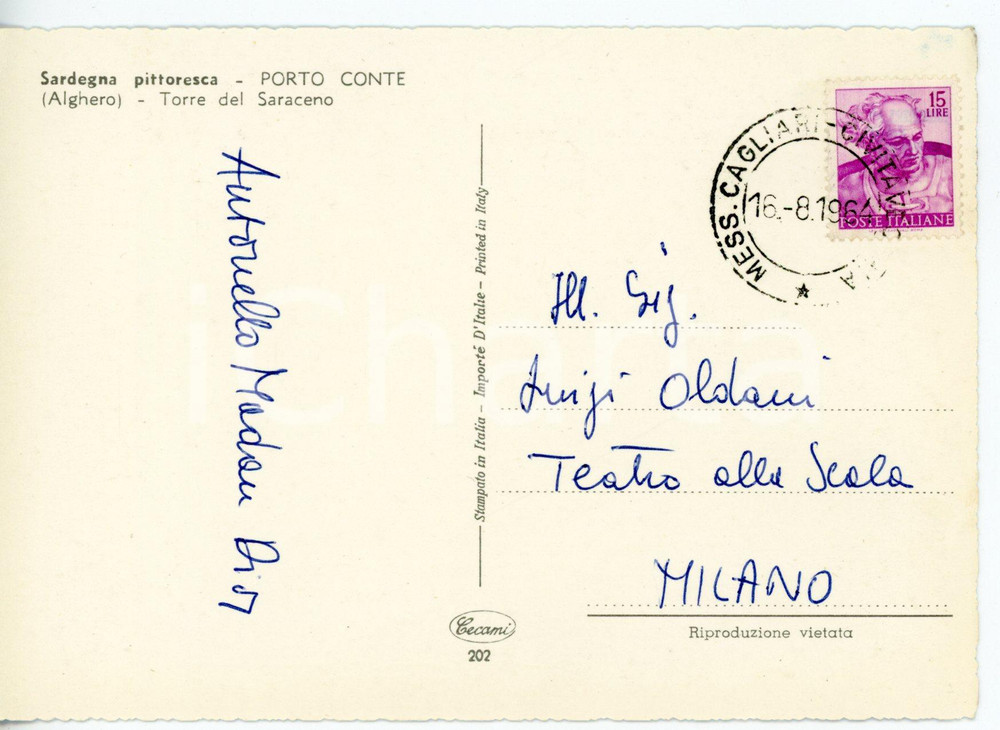 Sardegna pittoresca - PORTO CONTE
(Alghero) - Torre del Saraceno
15
LIRE
POSTE ITALIANE
MESS. CAGLIARI-CIVITAVECCHIA
16.-8.1964
Antonello Madau Diaz
Stampato in Italia - Importé D'Italie - Printed in Italy
Ill. Sig.
Luigi Oldani
Teatro alla Scala
MILANO
Riproduzione vietata
Cecami
202
iCharta